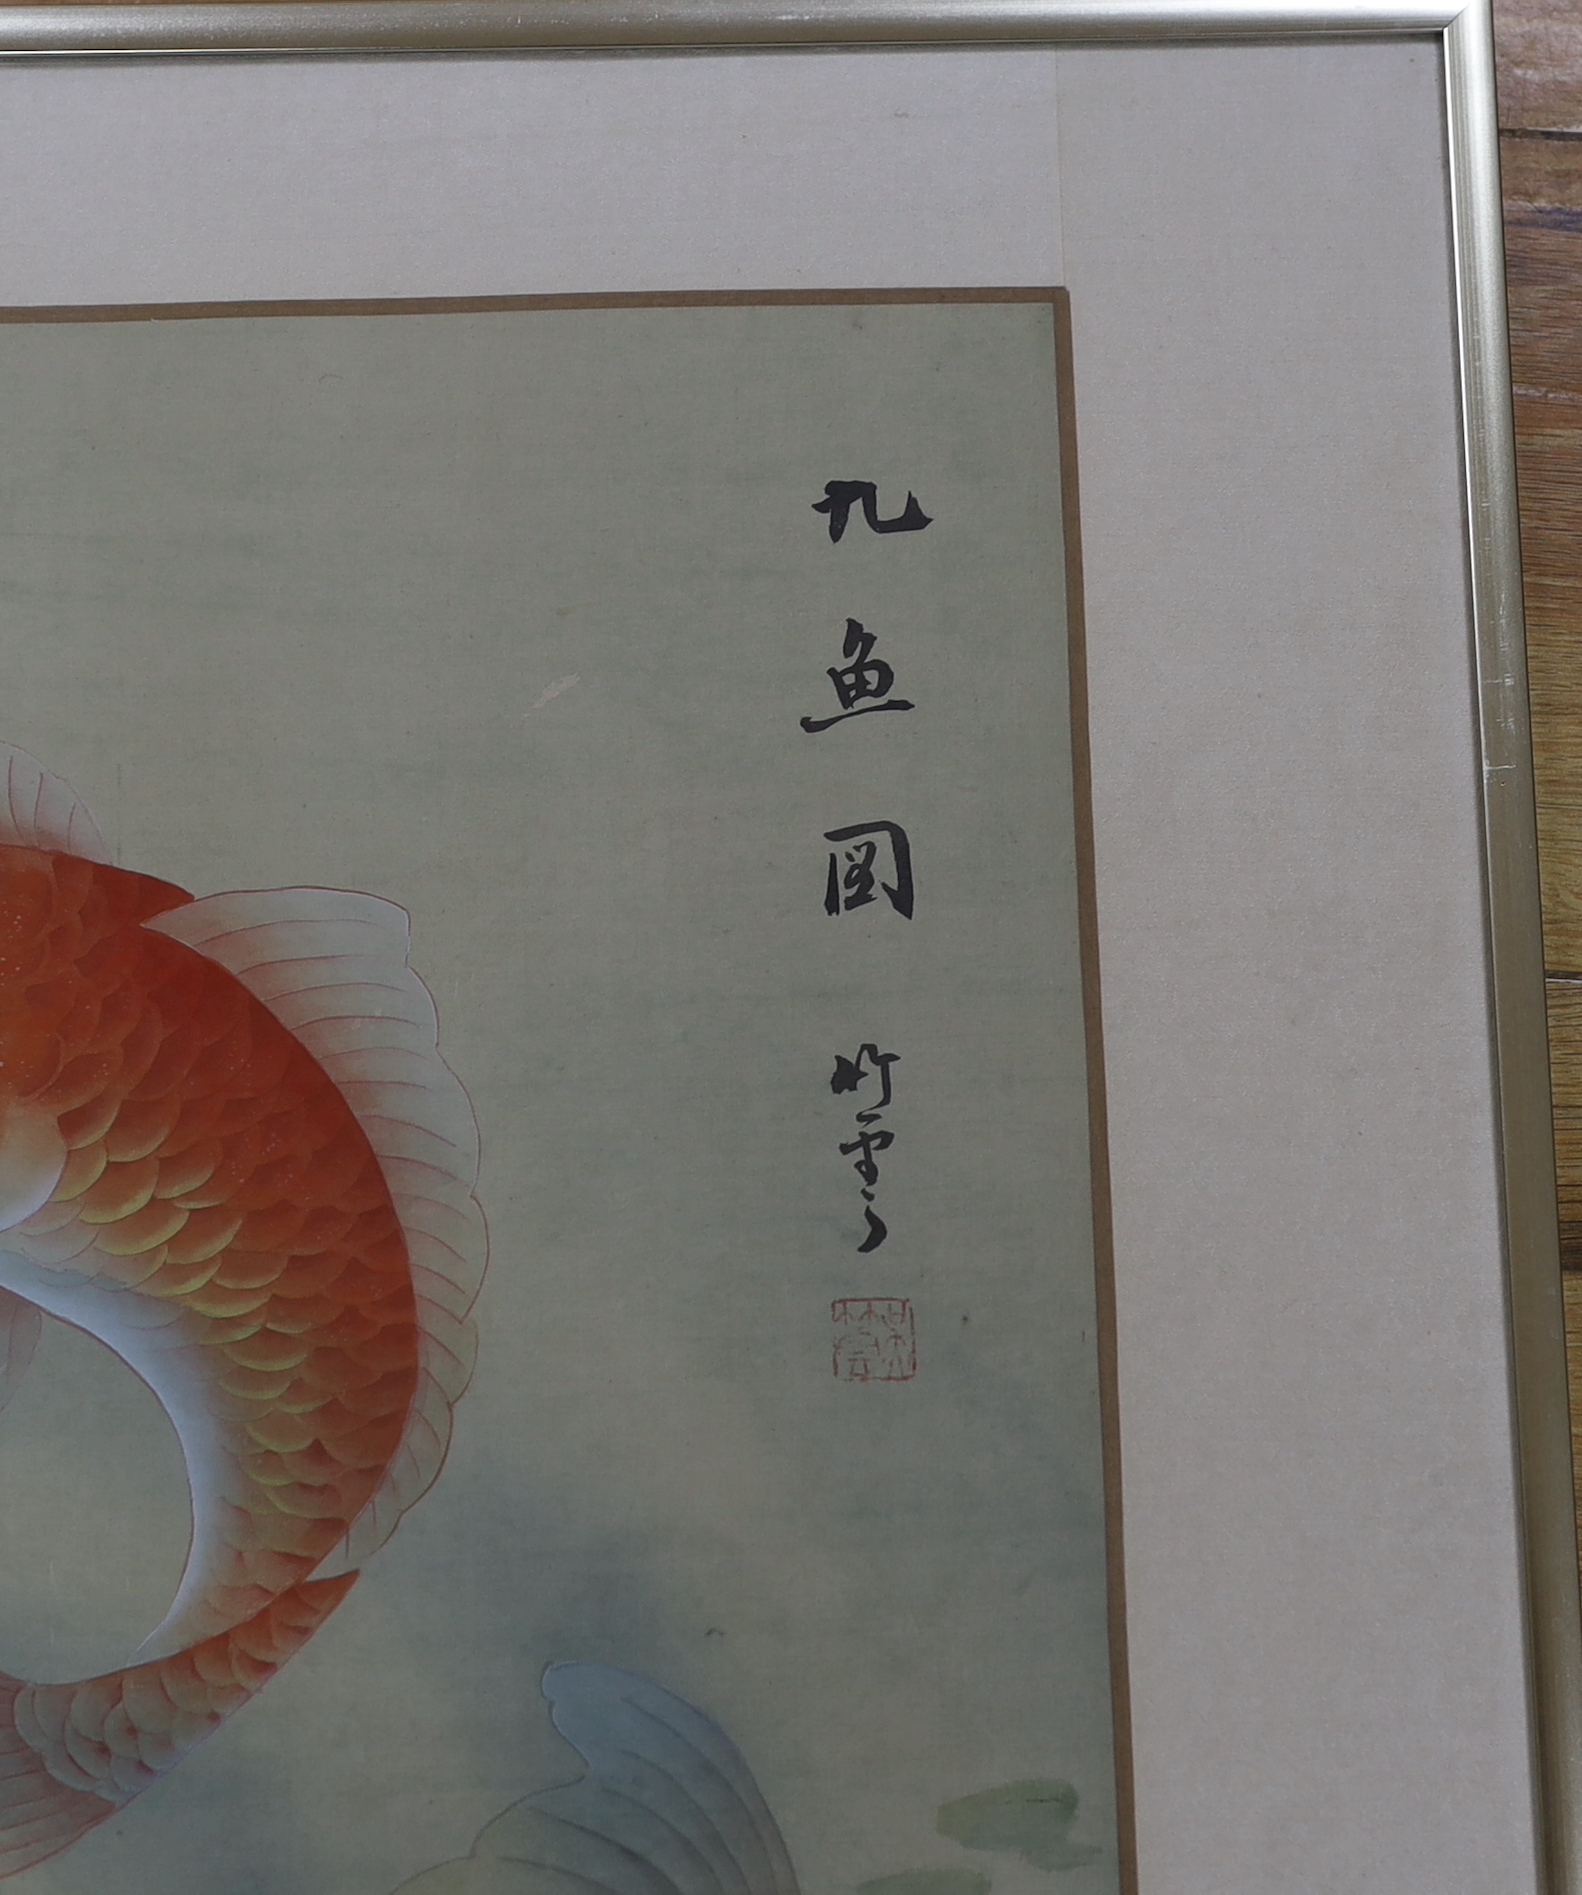 九魚図 竹雲